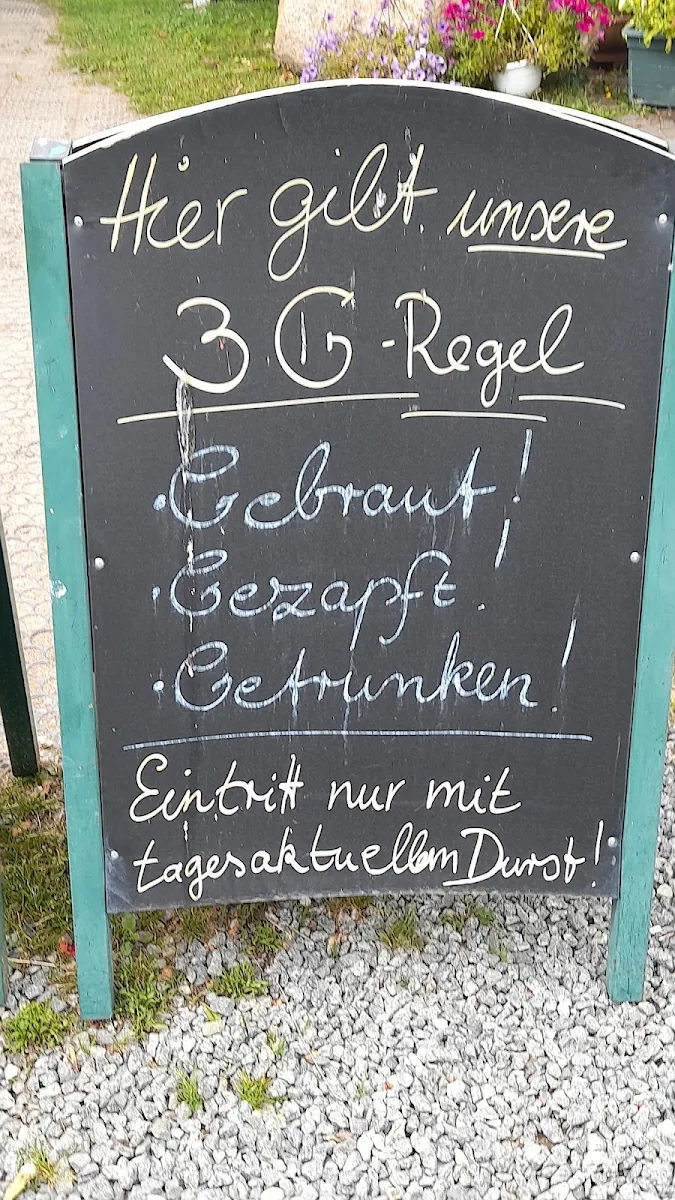 Hier gilt unsere
3G-Regel
· Gebraut!
· Gezapft!
· Getrunken!
Eintritt nur mit
tagesaktuellem Durst!